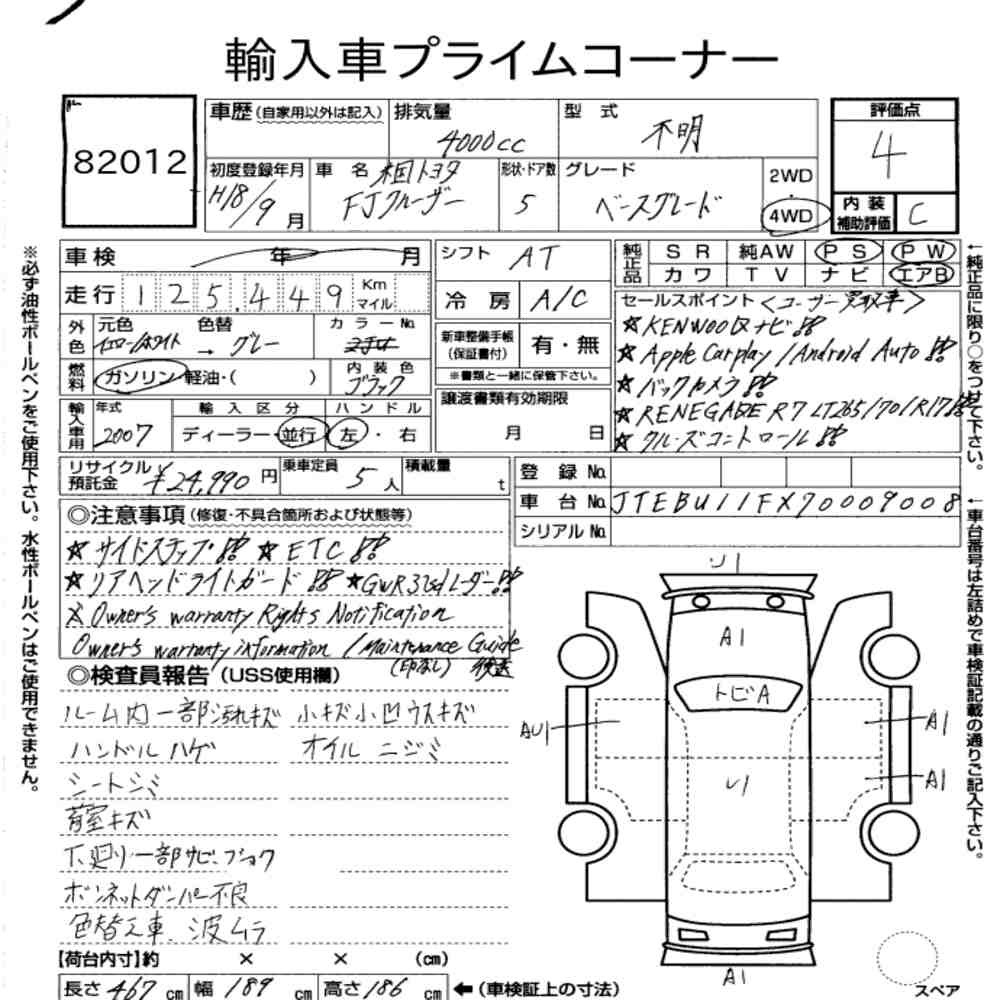 輸入車プライムコーナー
82012
車歴 (自家用以外は記入) 排気量 4000cc 型式 不明
評価点 4
初度登録年月 H18/9月 車名 相国トヨタ FJクルーザー 形状・ドア数 5 グレード ベースグレード 2WD・4WD
内装補助評価 C
車検 年 月
シフト AT
純正品 SR 純AW PS PW
カワ TV ナビ エアB
走行 125,449 Km マイル
冷房 A/C
セールスポイント <ユーザー買取車>
☆KENWOODナビ!!
☆Apple Carplay/Android Auto!!
☆バックカメラ!!
☆RENEGADE R7 LT265/70/R17!!
☆クルーズコントロール!!
外色 元色 イエロー/ホワイト 色替 → グレー カラーNo.
新車整備手帳 (保証書付) 有・無
※書類と一緒に保管下さい。
燃料 ガソリン 軽油・( ) 内装色 ブラック
譲渡書類有効期限 月 日
輸入車用 年式 2007 輸入区分 ディーラー・並行 ハンドル 左・右
リサイクル預託金 ¥24,990円 乗車定員 5人 積載量 t
登録No.
車台No. JTEBU11FX70009008
シリアルNo.
◎注意事項 (修復・不具合箇所および状態等)
☆サイドステップ!! ☆ETC!!
☆リアヘッドライトガード!! ☆GWR321sdレーダー!!
※Owner's warranty Rights Notification
Owner's warranty information /Maintenance Guide
(印なし) 後送
◎検査員報告 (USS使用欄)
ルーム内一部汚れキズ 小キズ小凹ウスキズ
ハンドルハゲ オイルニジミ
シートシミ
荷室キズ
下廻り一部サビ、フショク
ボンネットダンパー不良
色替え車、波ムラ
U1
A1
トビA
AU1
A1
U1
A1
A1
スペア
【荷台内寸】約 × × (cm)
長さ 467cm 幅 189cm 高さ 186cm ←(車検証上の寸法)
※必ず油性ボールペンをご使用下さい。水性ボールペンはご使用できません。
←純正品に限り○をつけて下さい。
←車台番号は左詰めで車検証記載の通りご記入下さい。